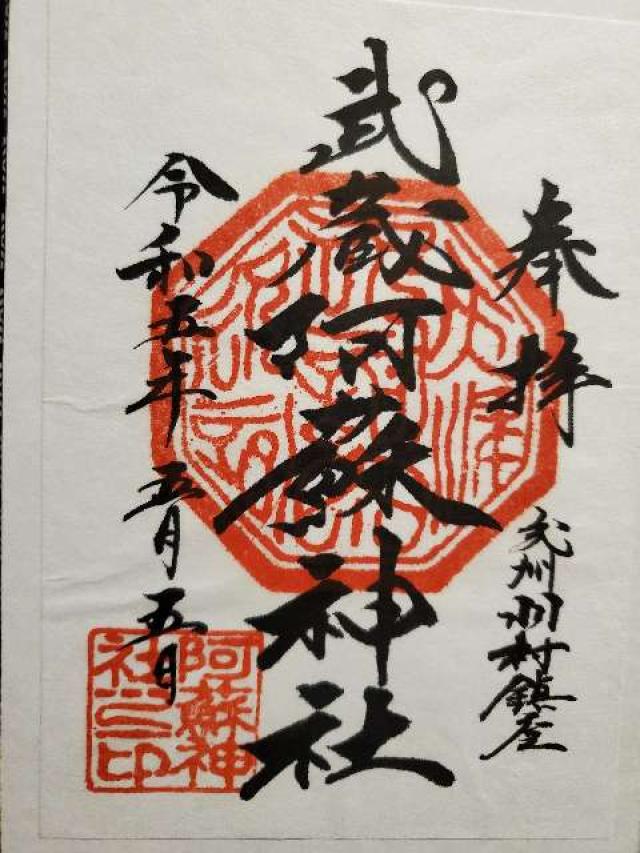 奉拝
武州羽村鎮座
武蔵阿蘇神社
令和五年 五月五日
阿蘇神
社之印